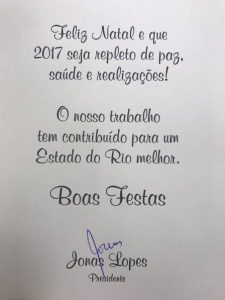 Feliz Natal e que
2017 seja repleto de paz,
saúde e realizações!
O nosso trabalho
tem contribuído para um
Estado do Rio melhor.
Boas Festas
Jonas
Jonas Lopes
Presidente